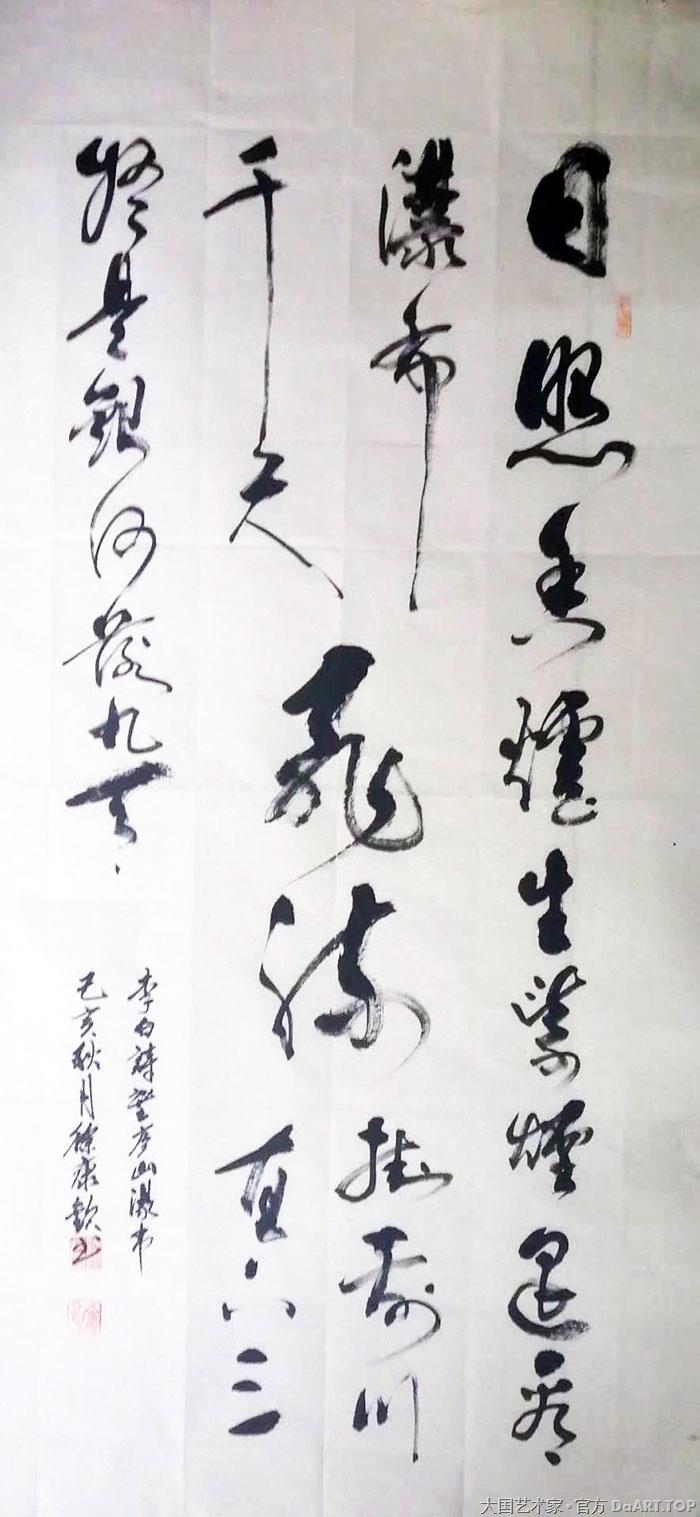 日照香爐生紫煙遥看
瀑布挂前川
飛流直下三
千尺
疑是銀河落九天
李白詩望庐山瀑布
己亥秋月徐康
大国艺术家·官方 DaART.TOP